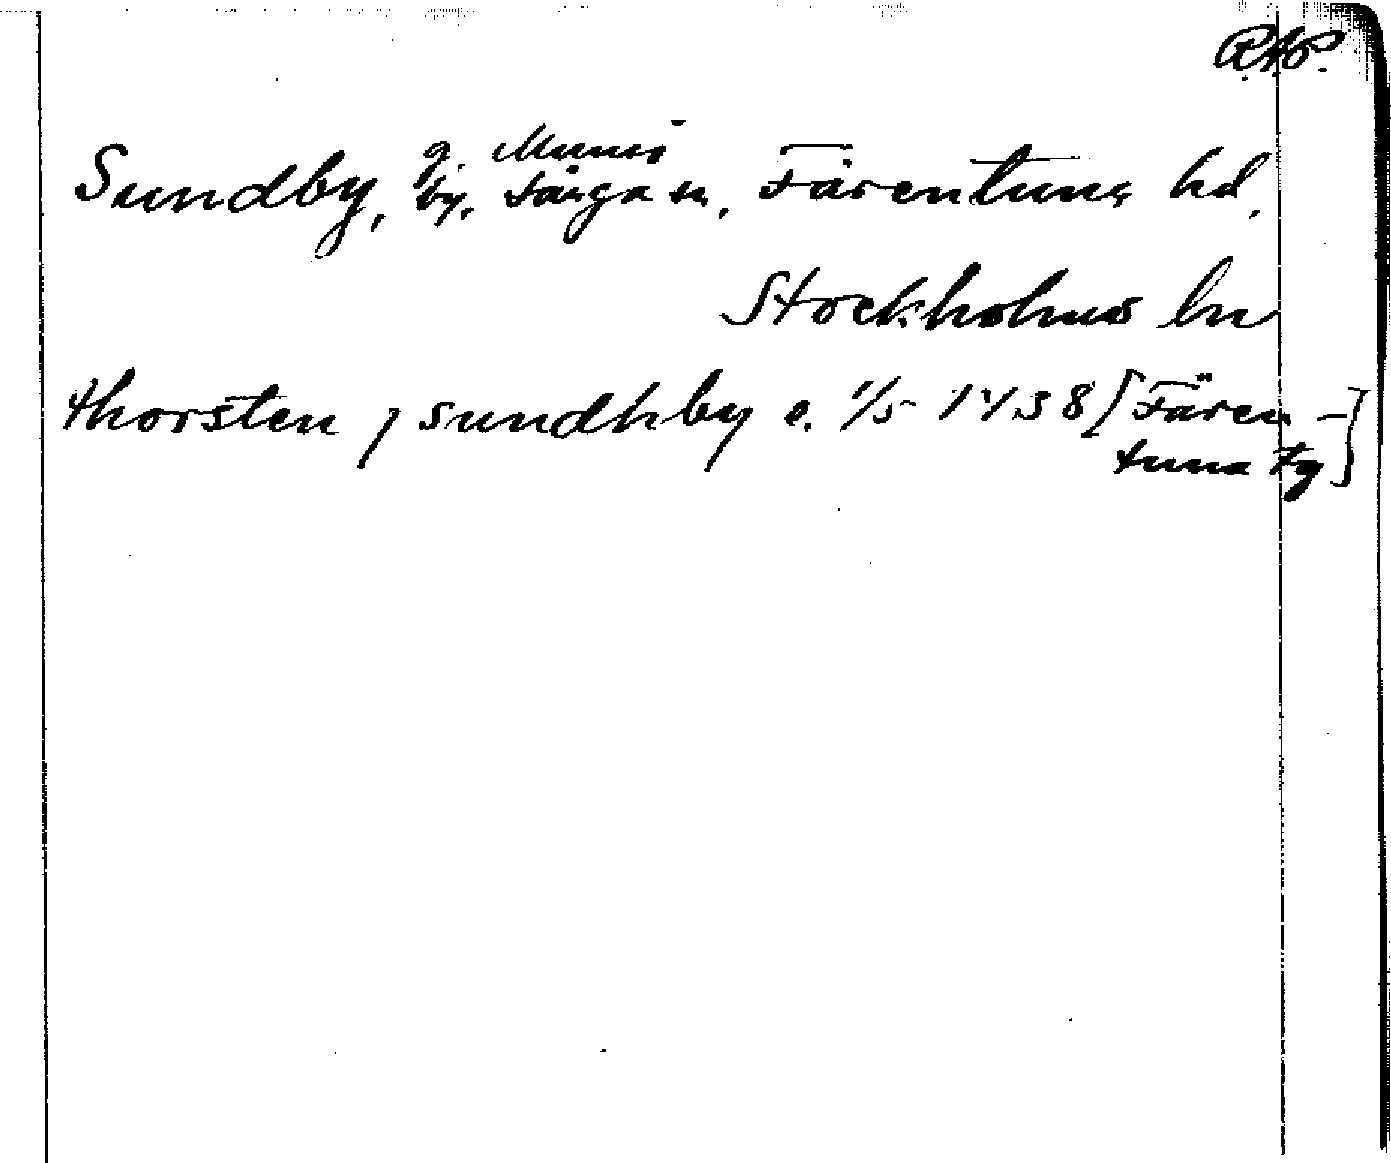 R.A.P.
Sundby, g. Munsö
by, Färga sn, Färentuna hd,
Stockholms ln
thorsten j sundhby o. 1/5 1438 [Fären-
tuna tg]